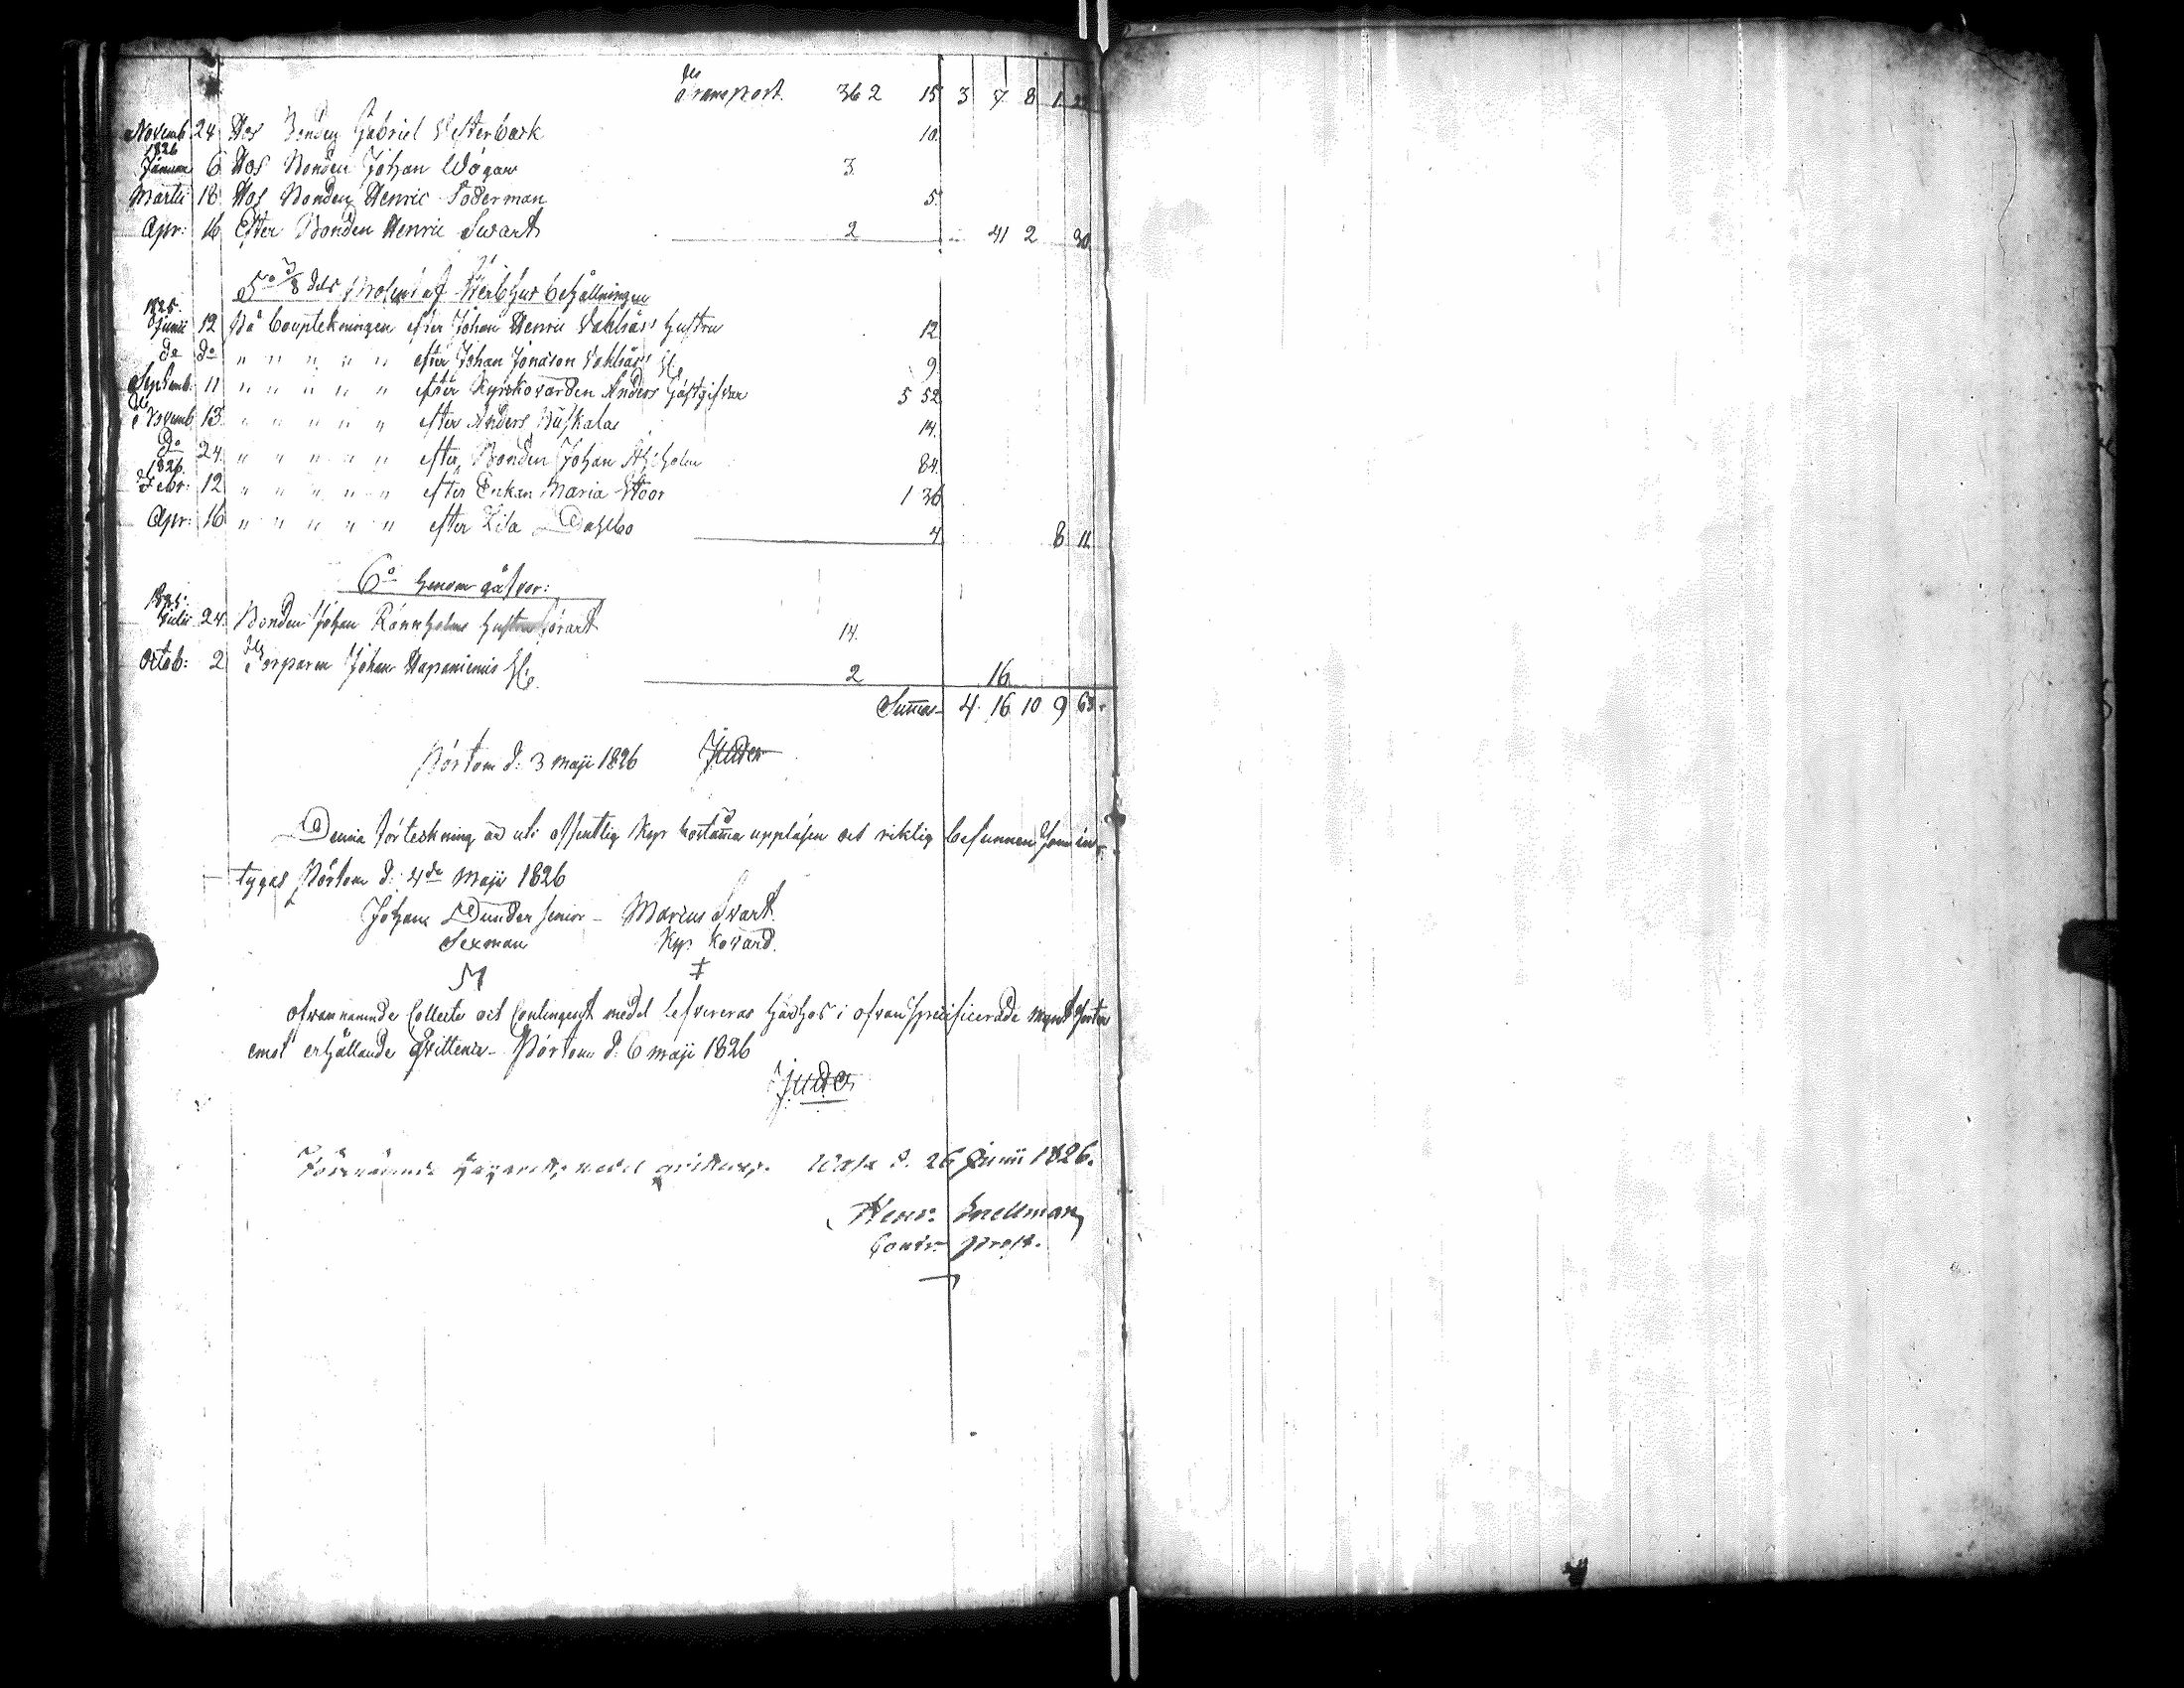 Transport. 36 2 15 3 7 8 1 22
Novemb 24 Hos Bonden Gabriel Westerback 10
1826
Januar 6 Hos Bonden Johan Wägar 3
Martii 18 Hos Bonden Henric Söderman 5
Apr: 16 Efter Bonden Henric Swart 2 41 2 30
5o 3/8 dels Procent af Sterbhus behållningen
1825.
Junii 12 På bouptekningen efter Johan Henric Dahlbäcks hustru 12
do do " " " " " efter Johan Jonasson 9
Septemb. 11 " " " " " efter Kyrkovärden Anders Gästgifvar 5 52
Novemb 13 " " " " " efter Anders 14
Do 24 " " " " " efter Bonden Johan 84
1826.
Febr: 12 " " " " " efter Enkan Maria Stoor 1 36
Apr: 16 " " " " " efter Lisa Dahlbo 4 8 11
6o Genom gåfvor:
1825.
Julii 24 Bonden Johan Rönnholms hustru förärt 14
Octob: 2 Torparen Johan Hapaniemis 2 16
Summa 4 16 10 9 63
Pörtom d: 3 Maji 1826 Juden
Denna förteckning är uti offentlig Kyrkostämma uppläsen och riktig befunnen som in-
tygas Pörtom d: 4de Maji 1826
Johan Dunder senior Marcus Svart
Sexman Kyrkovärd.
ofvannämnde Collecte och Contingent medel lefvereras härhos i ofvan specificerade mynt sorter
emot erhållande Qvittence. Pörtom d: 6 Maji 1826
Juden
medel qvitteras. Wasa d. 26 Junii 1826.
Henr: Snellman
Contr: Prost.